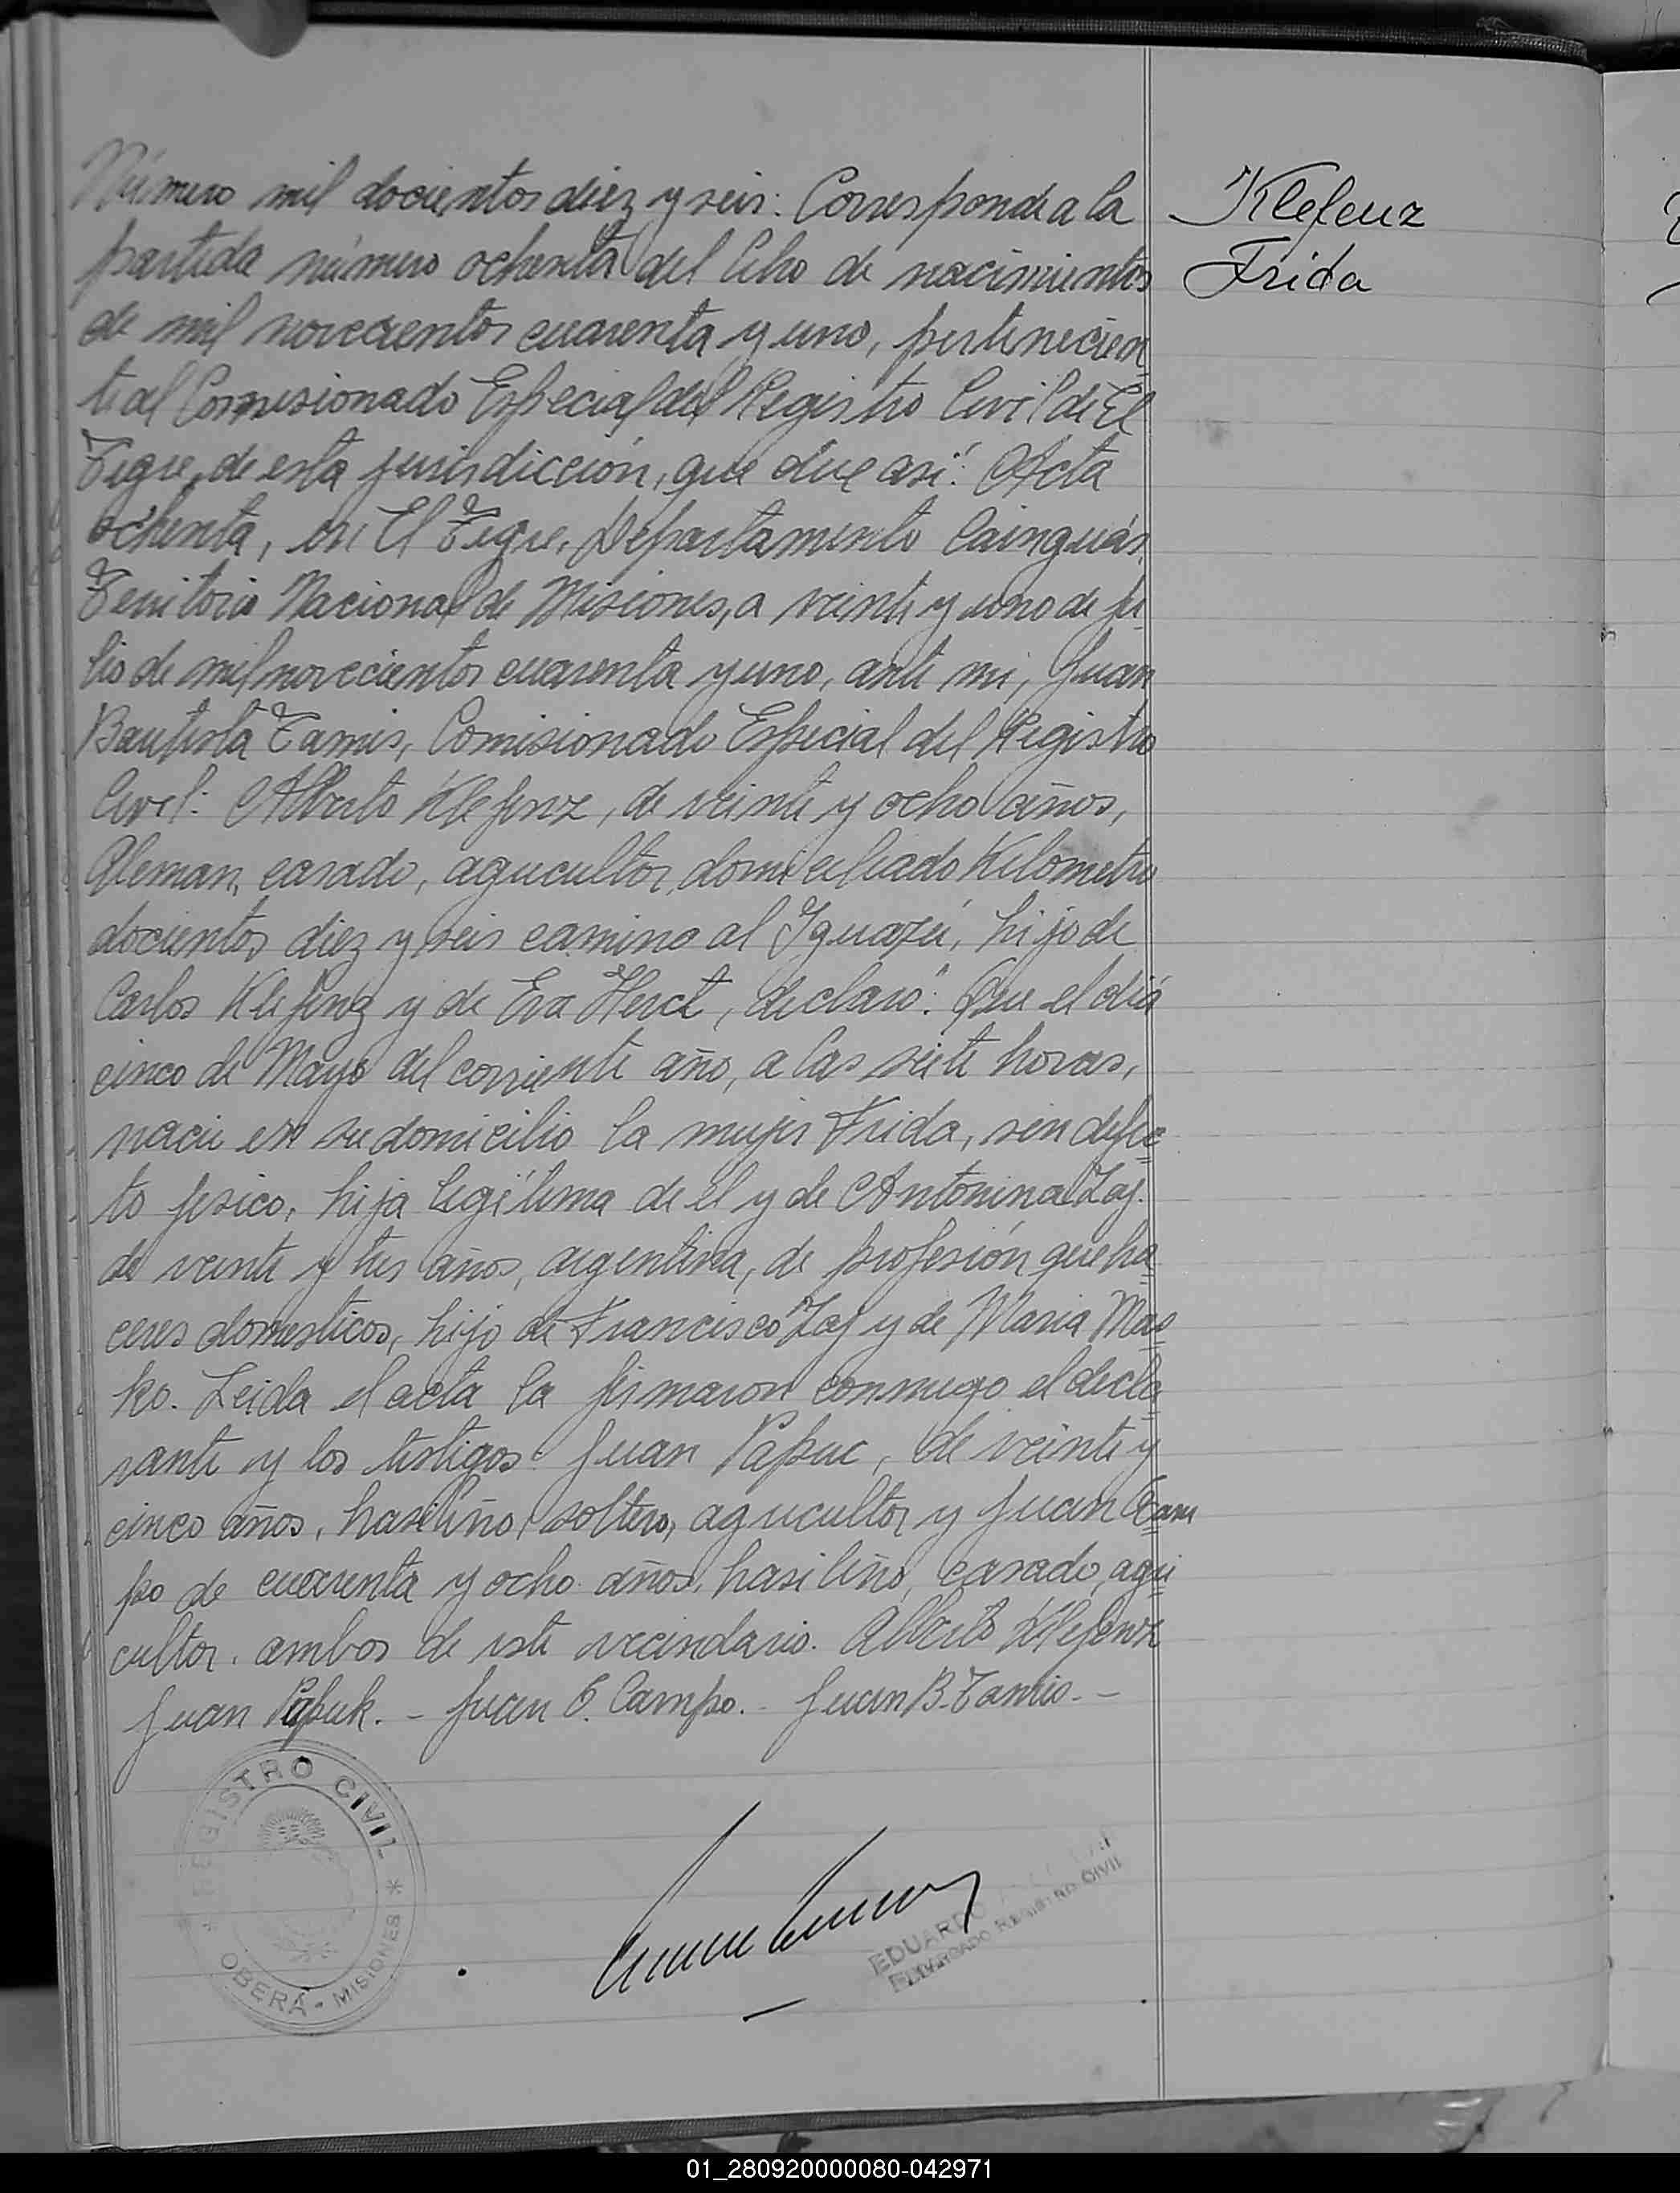 Número mil docientos diez y seis: Corresponde a la
partida número ochenta del libro de nacimientos
de mil novecientos cuarenta y uno, pertenecien
te al Comisionado Especial del Registro Civil de El
Tigre, de esta jurisdicción, que dice así: Acta
ochenta, en El Tigre, Departamento Cainguás,
Territorio Nacional de Misiones, a veinte y uno de ju
lio de mil novecientos cuarenta y uno, ante mi, Juan
Bautista Tamis, Comisionado Especial del Registro
Civil: Alberto Klefenz, de veinte y ocho años,
Aleman, casado, agricultor, domiciliado Kilometro
docientos diez y seis camino al Iguazú, hijo de
Carlos Klefenz y de Eva Herct, declaró: Que el día
cinco de Mayo del corriente año, a las siete horas,
nacio en su domicilio la mujer Frida, sin defec
to fisico, hija legítima de él y de Antonina Zaj.
de veinte y tres años, argentina, de profesión queha
ceres domesticos, hijo de Francisco Zaj y de Maria Mas
ko. Leida el acta la firmaron conmigo el decla
rante y los testigos: Juan Papuc, de veinte y
cinco años, brasileño, soltero, agricultor y Juan Cam
po de cuarenta y ocho años, brasileño, casado, agri
cultor. ambos de este vecindario. Alberto Klefenz
Juan Papuk. - Juan O. Campo. - Juan B. Tamis. -
Klefenz
Frida
REGISTRO CIVIL
OBERÁ - MISIONES
EDUARDO
ENCARGADO REGISTRO CIVIL
01_280920000080-042971